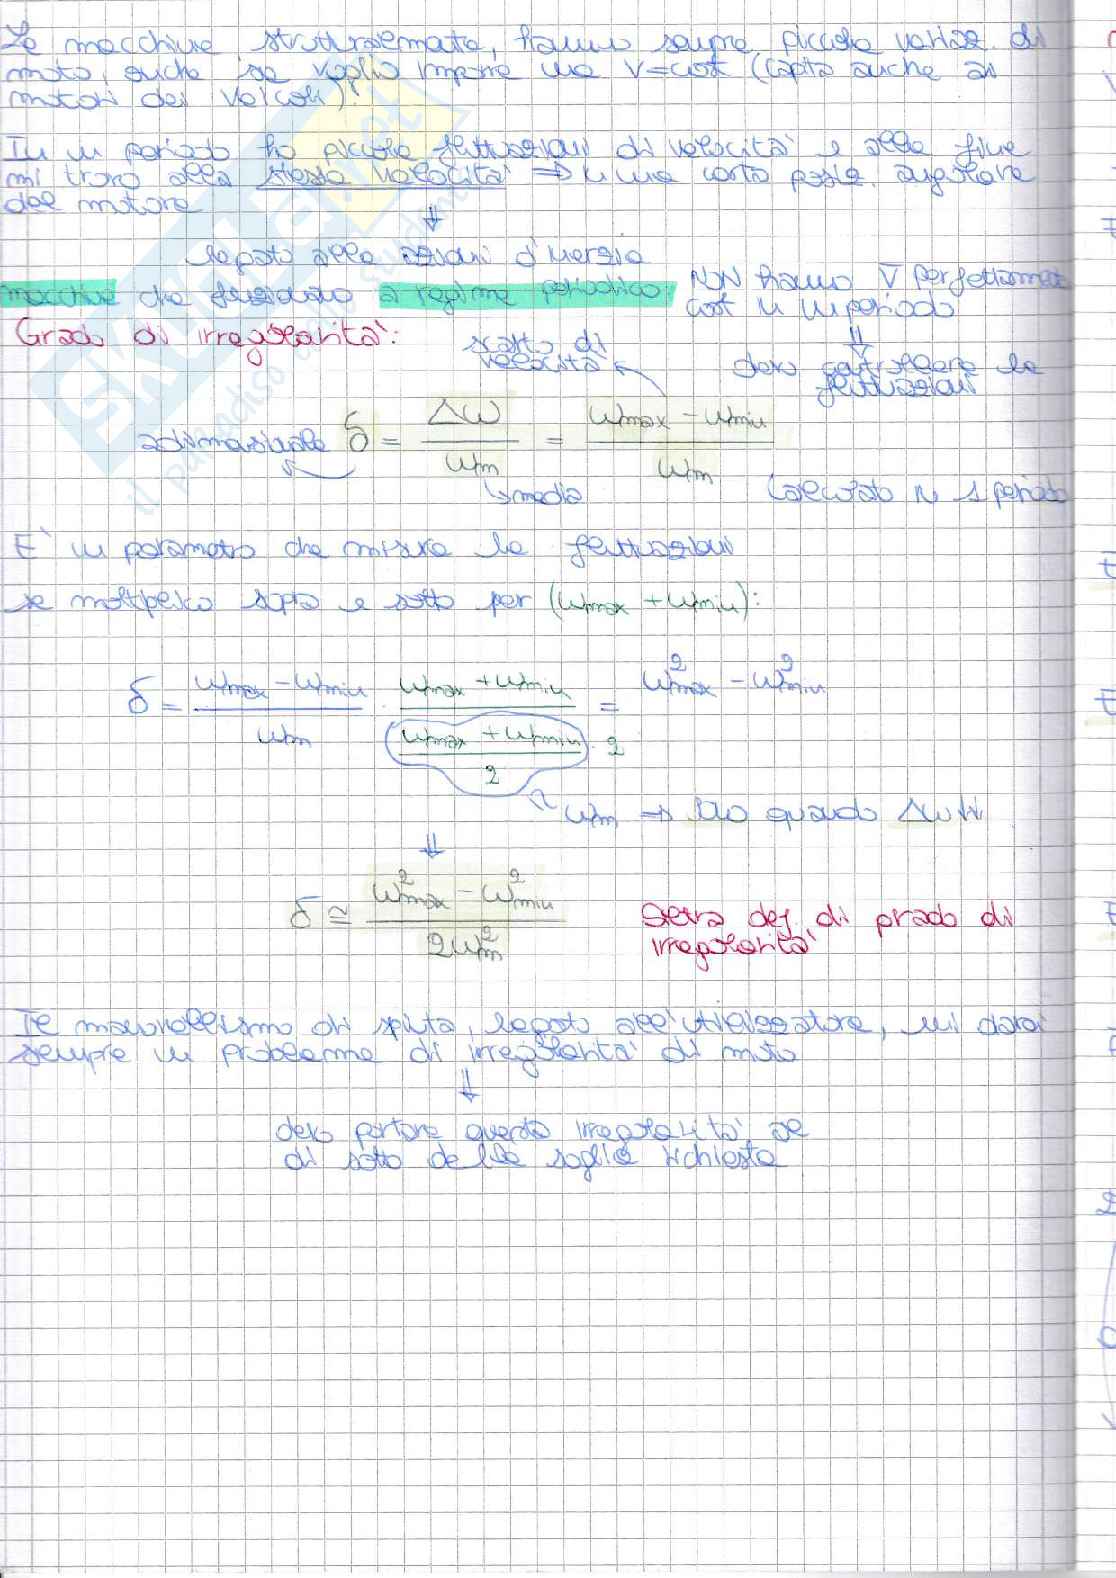 Le macchine strutturalmente, hanno sempre piccole variaz. di
moto, anche se voglio imporre una v=cost (capita anche ai
motori dei veicoli).
In un periodo ho piccole fluttuazioni di velocità e alla fine
mi trovo alla stessa velocità ⇒ in una certa posiz. angolare
del motore
⇓
legato alle azioni d'inerzia
macchine che funzionano a regime periodico: NON hanno v̄ perfettamente
cost in un periodo
⇓
devo controllare le
fluttuazioni
Grado di irregolarità:
scarto di
velocità
adimensionale δ = Δω / ωm = ωmax - ωmin / ωm
↳ media
Calcolato in 1 periodo
E' un parametro che misura le fluttuazioni
se moltiplico sopra e sotto per (ωmax + ωmin):
δ = ωmax - ωmin / ωm · ωmax + ωmin / (ωmax + ωmin / 2) · 2 = ω²max - ω²min
ωm → quando Δω ↓↓
⇓
δ ≅ ω²max - ω²min / 2ω²m
def. di grado di
irregolarità
Il manovellismo di spinta, legato all'utilizzatore, mi darà
sempre un problema di irregolarità di moto
⇓
devo portare questa irregolarità al
di sotto delle soglie richieste
SKUOLA.net
il paradiso dello studente